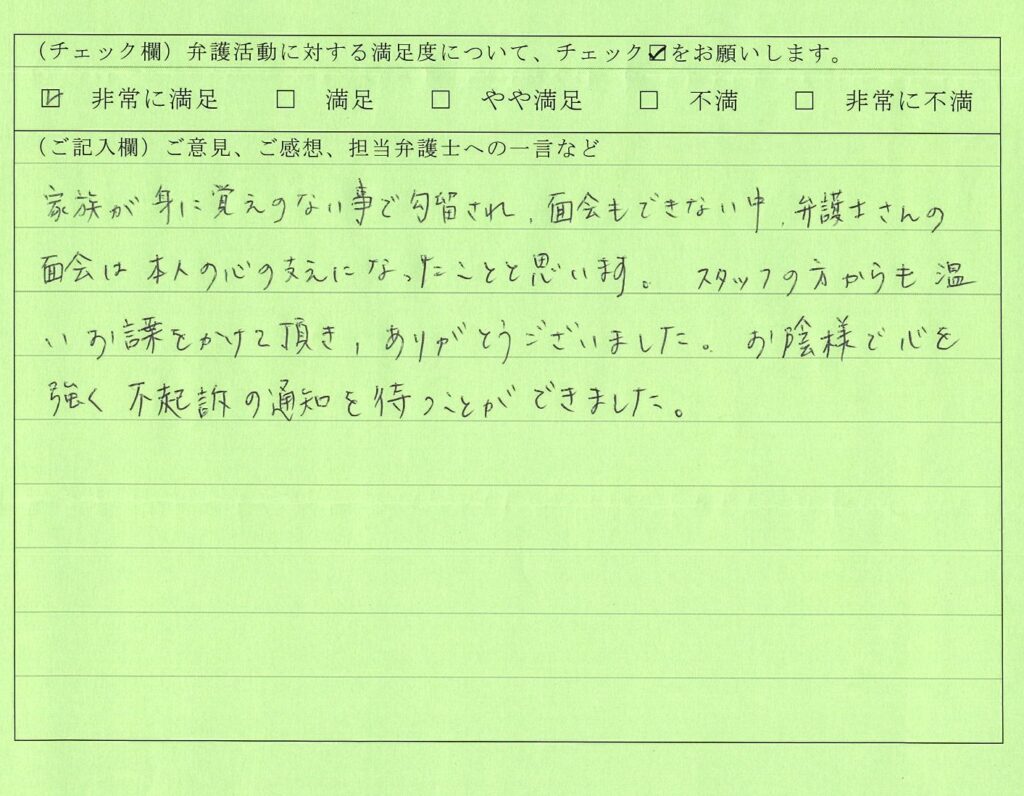 （チェック欄）弁護活動に対する満足度について、チェック☑をお願いします。
☑ 非常に満足 □ 満足 □ やや満足 □ 不満 □ 非常に不満
（ご記入欄）ご意見、ご感想、担当弁護士への一言など
家族が身に覚えのない事で勾留され、面会もできない中、弁護士さんの
面会は本人の心の支えになったことと思います。スタッフの方からも温
いお言葉をかけて頂き、ありがとうございました。お陰様で心を
強く不起訴の通知を待つことができました。